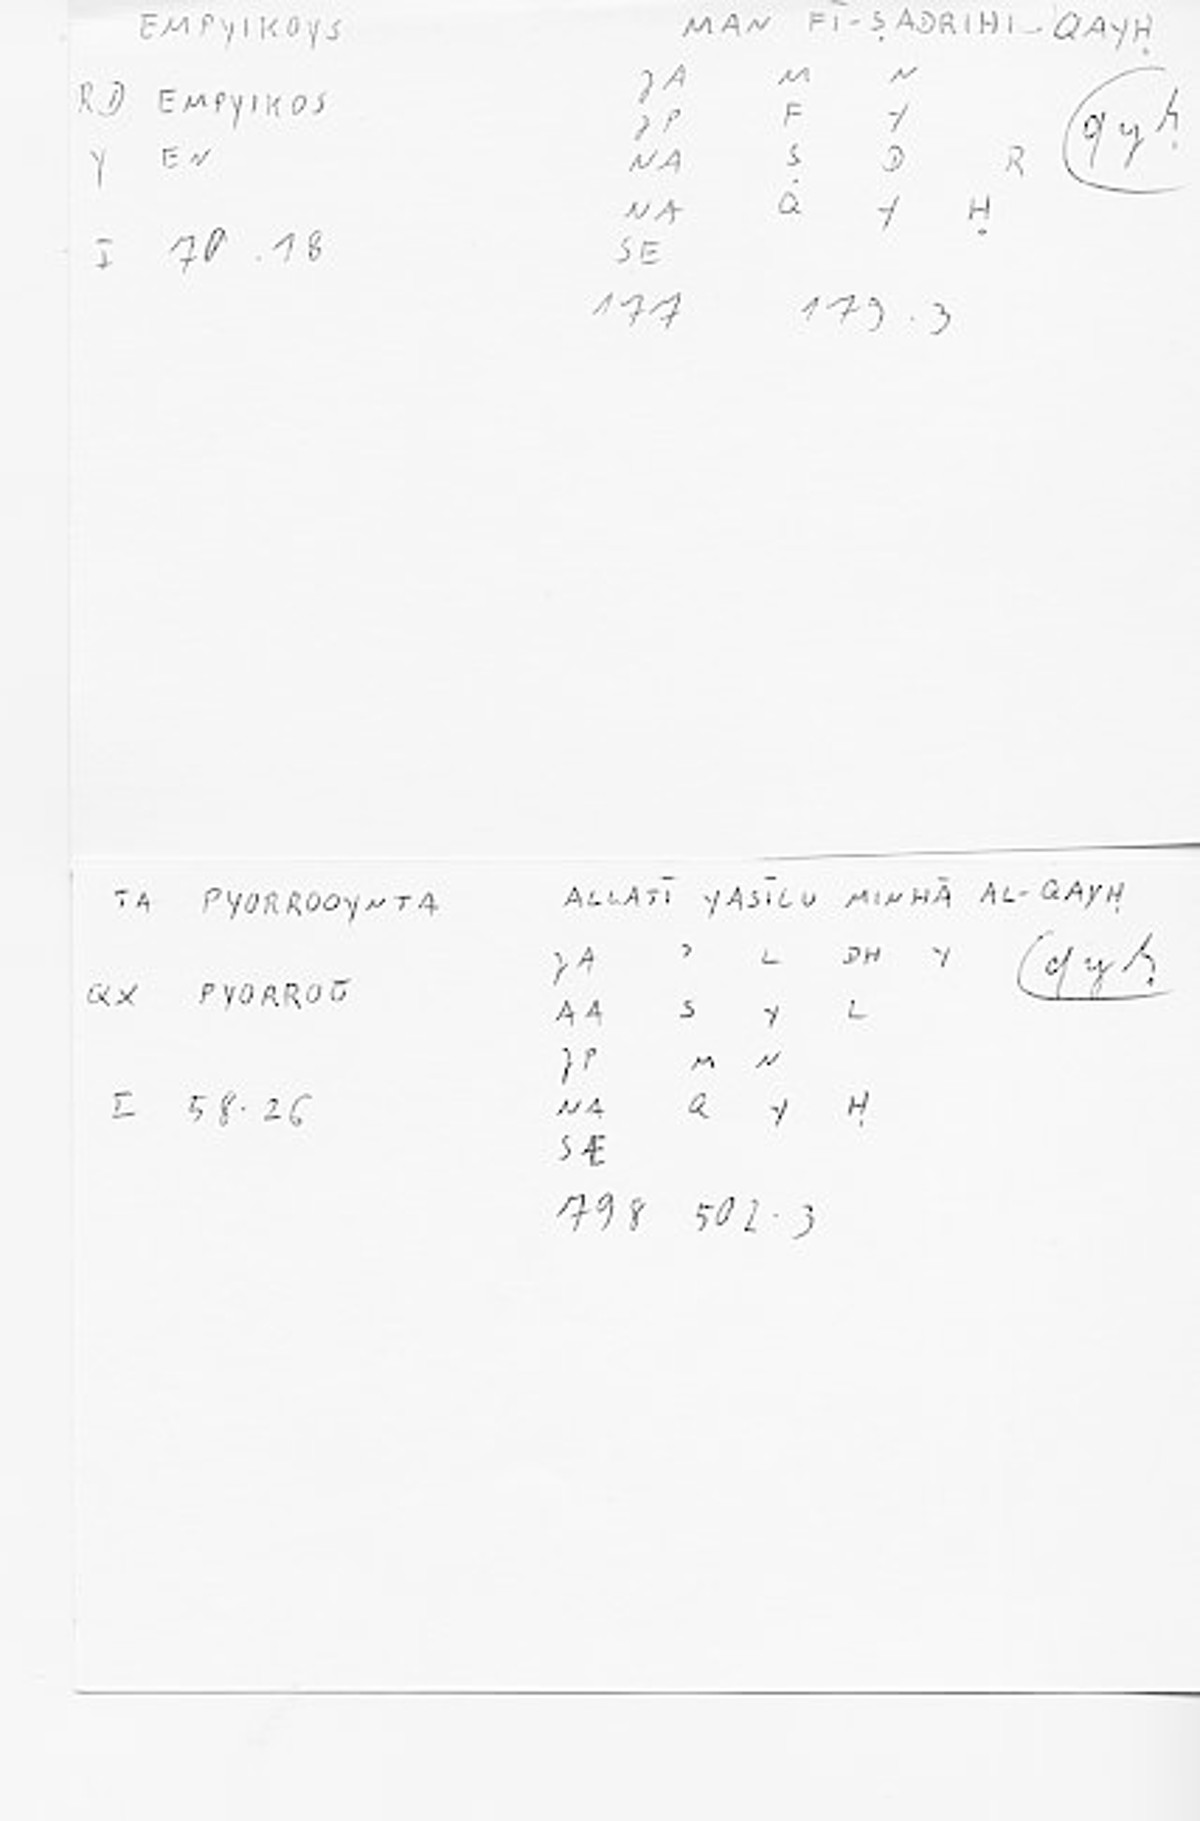 EMPYIKOYS MAN FĪ-ṢADRIHI-QAYḤ
RD EMPYIKOS ȜA M N
qyḥ
ȜP F Y
Y EN NA Ṣ D R
NA Q Y Ḥ
I 70.18 SE
177 179.3
TA PYORROOYNTA ALLATĪ YASĪLU MINHĀ AL-QAYḤ
ȜA ʾ L DH Y qyḥ
QX PYORROŌ AA S Y L
ȜP M N
I 58.26 NA Q Y Ḥ
SÆ
798 502.3